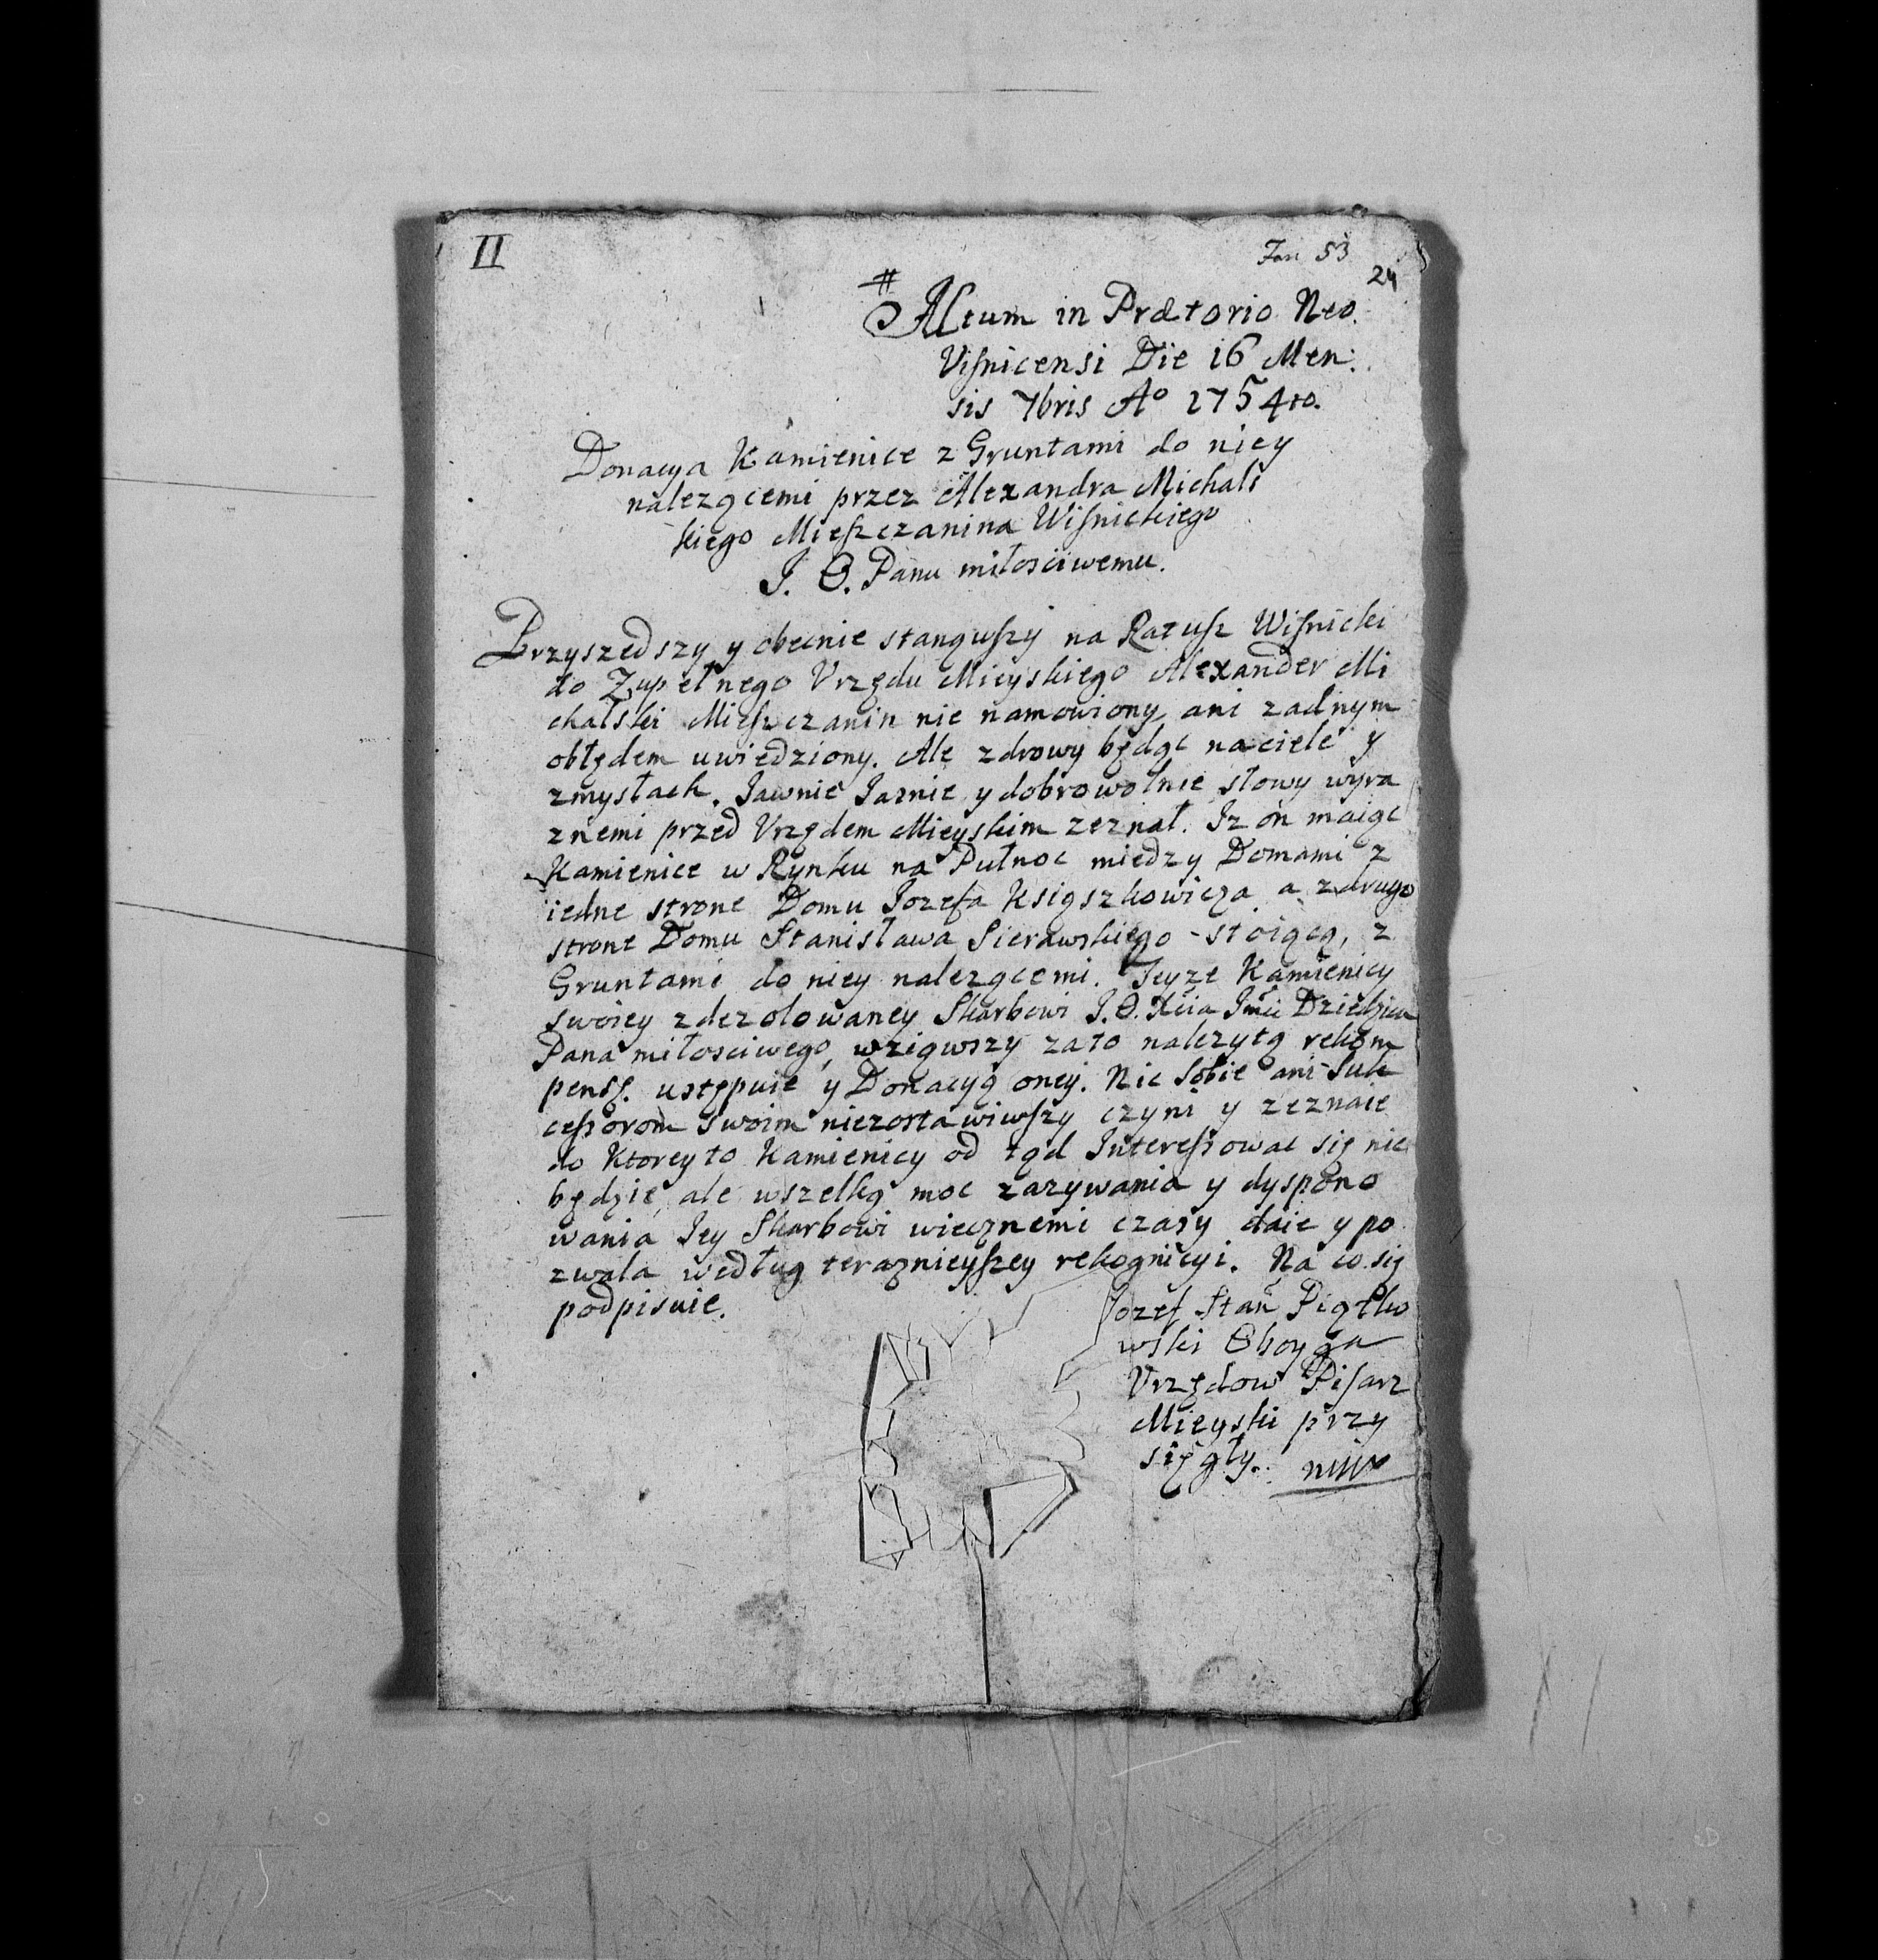 II
Fan 53
24
#
Actum in Prætorio Neo.
Viſnicensi Die 16 Men:
sis 7bris Ao 1754to.
Donacya Kamienice z Gruntami do niey
nalezącemi przez Alexandra Michals
kiego Mieſzczanina Wiſnickiego
J. O. Panu miłosciwemu.
Przyszedszy y obecnie stanąuſzy na Ratuſz Wiſnicki
do Zupełnego Vrzędu Mieyskiego Alexander Mi
chalski Mieſzczanin nie namowiony, ani zadnym
obłędem uwiedziony. Ale zdrowy będąc na ciele y
zmysłach. Jawnie Jasnie y dobrowolnie słowy wyra
znemi przed Vrzędem Mieyskim zeznał. Iz on maiąc
Kamienice w Rynku na Pułnoc miedzy Domami z
iedne strone Domu Jozefa Ksiąszkowicza a z drugo
strone Domu Stanisława Sierawskiego - stoiącą, z
Gruntami do niey nalezącemi. Teyze Kamienicy
swoiey zdezolowaney Skarbowi J. O. Xcia Jmci Dziedzica
Pana miłosciwego, wziąwszy zato nalezytą rekom
pensę. ustępuie y Donacyą oney. Nic sobie ani Suk
ceſsorom swoim niezostawiwſzy czyni y zeznaie
do Ktorey to Kamienicy od tąd Intereſsowac się nie
będzie, ale wszelką moc zazywania y dyspono
wania Jey Skarbowi wiecznemi czasy daie y po
zwala według teraznieyſzey rekognicyi. Na co się
podpisuie.
Jozef Stan Piątko
wski Oboyga
Vrzędow Piſarz
Mieyski przy
sięgły. mppa